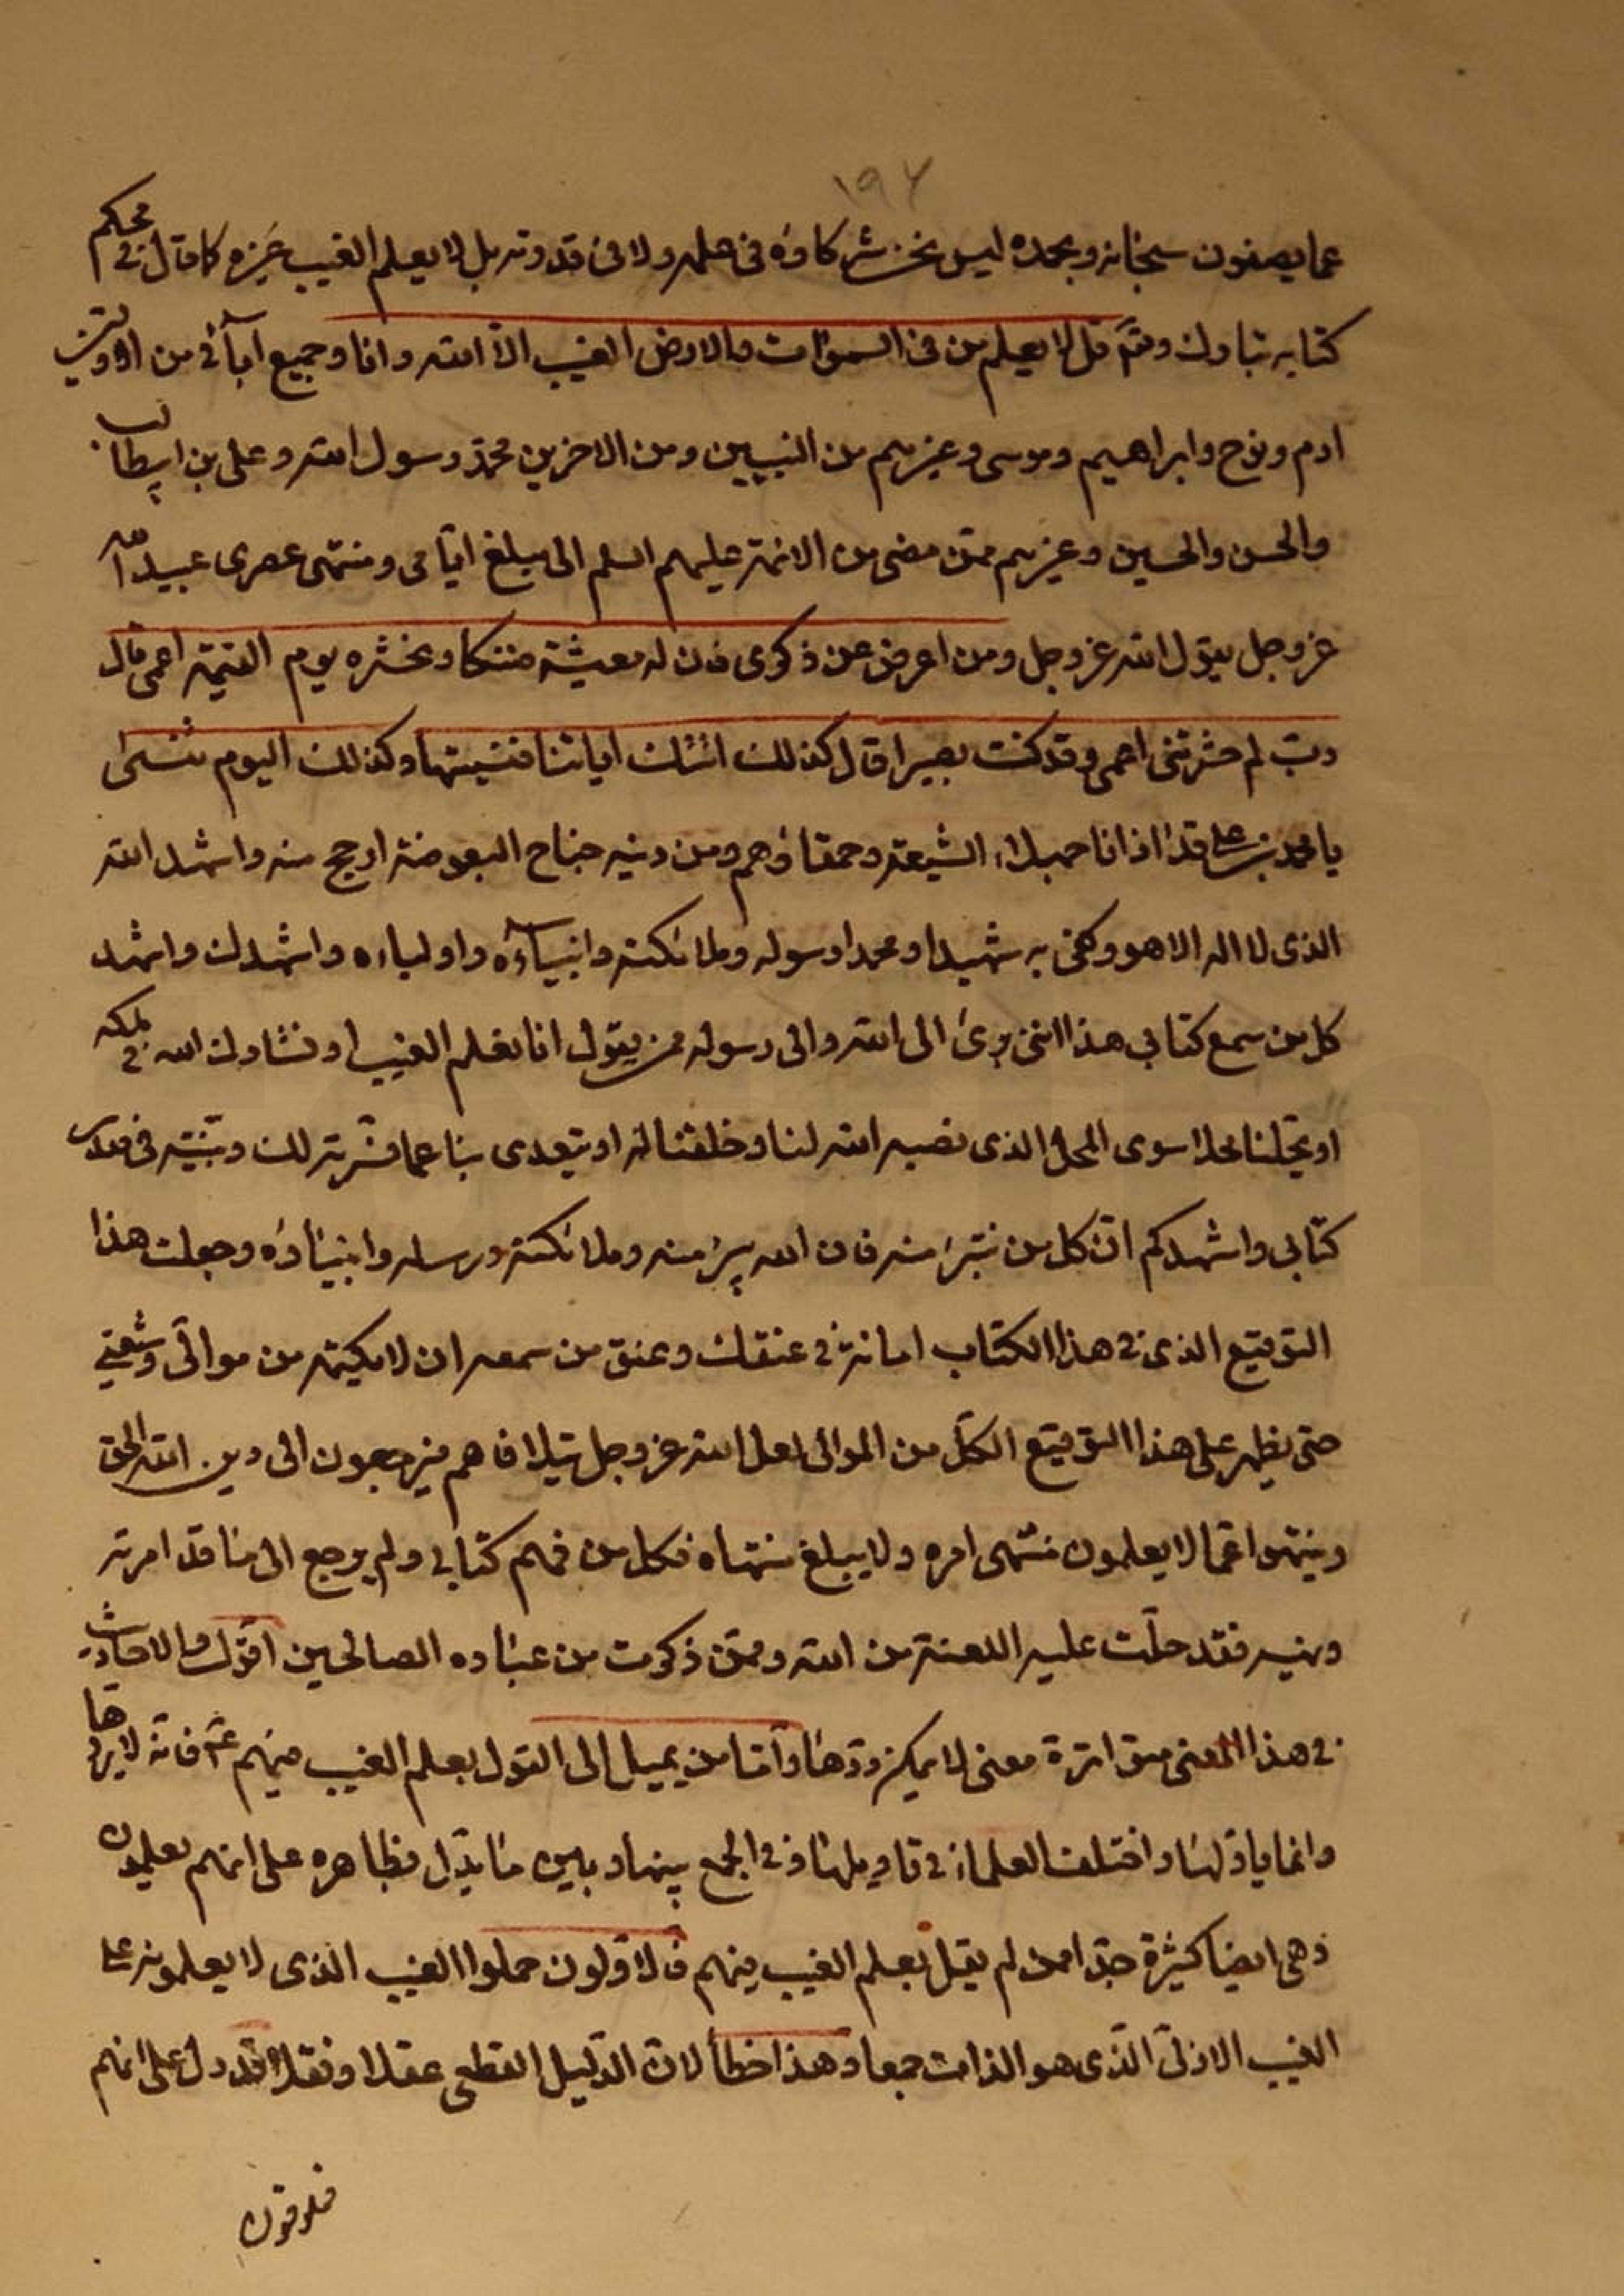 ١٩٧
عما يصفون سبحانه وبحمده ليس نحن شركاؤه فى علمه ولا فى قدرته بل لا يعلم الغيب غيره كما قال فى محكم
كتابه تبارك وتع قل لا يعلم من فى السموات والارض الغيب الا الله وانا وجميع ابآئى من الاولين
ادم ونوح وابراهيم وموسى وغيرهم من النبيين ومن الاخرين محمد رسول الله وعلى بن ابيطالب
والحسن والحسين وغيرهم ممن مضى من الائمة عليهم السلم الى مبلغ ايامى ومنتهى عصرى عبيد الله
عز وجل يقول الله عز وجل ومن اعرض عن ذكرى فان له معيشة ضنكا ونحشره يوم القيمة اعمى قال
رب لم حشرتنى اعمى وقد كنت بصيرا قال كذلك اتتك اياتنا فنسيتها وكذلك اليوم تنسى
يا محمد بن على قد اذانا جهلاء الشيعة وحمقاؤهم ومن دينه جناح البعوضة ارجح منه واشهد الله
الذى لا اله الا هو وكفى به شهيدا ومحمدا رسوله وملائكته وانبيآءه واولياءه واشهدك واشهد
كل من سمع كتابى هذا اننى برئ الى الله والى رسوله ممن يقول انا نعلم الغيب او نشارك الله فى ملكه
او يحلنا محلا سوى المحل الذى نصبه الله لنا وخلقنا له او يتعدى بنا عما فسرته لك وبينته فى صدر
كتابى واشهدكم ان كل من نتبرأ منه فان الله يبرأ منه وملائكته ورسله وانبيائه وجعلت هذا
التوقيع الذى فى هذا الكتاب امانة فى عنقك وعنق من سمعه ان لا يكتمه من موالى وشيعتى
حتى يظهر على هذا التوقيع الكل من الموالى لعل الله عز وجل يتلافاهم فيرجعون الى دين الله الحق
وينتهوا عما لا يعلمون منتهى امره ولا يبلغ منتهاه فكل من فهم كتابى ولم يرجع الى ما قد امرته
ونهيته فقد حلت عليه اللعنة من الله وممن ذكرت من عباده الصالحين اقول والاحاديث
فى هذا المعنى متواترة معنى لا يمكن ردها واما من يميل الى القول بعلم الغيب منهم ع فانه لا يردها
وانما ياولها واختلف العلماء فى تاويلها وفى الجمع بينها وبين ما يدل بظاهره على انهم يعلمون
وهى ايضا كثيرة جدا لم يقل بعلم الغيب منهم فالاولون حملوا الغيب الذى لا يعلمونه على
الغيب الازلى الذى هو الذات جمعا وهذا خطأ لان الدليل القطعى عقلا ونقلا قد دل على انهم